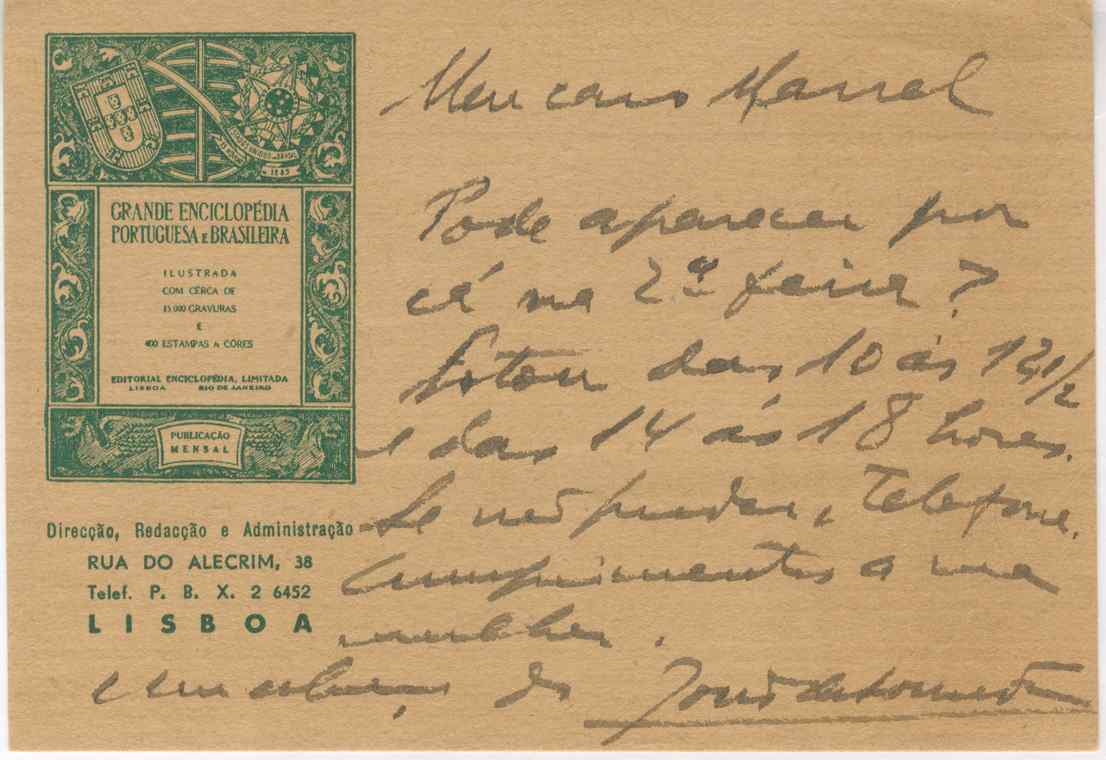 GRANDE ENCICLOPÉDIA
PORTUGUESA E BRASILEIRA
ILUSTRADA
COM CÊRCA DE
15.000 GRAVURAS
E
400 ESTAMPAS A CÔRES
EDITORIAL ENCICLOPÉDIA, LIMITADA
LISBOA RIO DE JANEIRO
PUBLICAÇÃO
MENSAL
Direcção, Redacção e Administração
RUA DO ALECRIM, 38
Telef. P. B. X. 2 6452
LISBOA
Meu caro Manuel
Pode aparecer por
cá na 2ª feira?
Estou das 10 às 12,1/2
e das 14 às 18 horas.
Se não puder, telefone.
Cumprimentos a sua
mulher.
e um abraço do